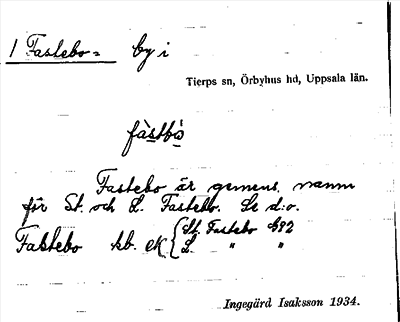 1 Fastebo = by i
Tierps sn, Örbyhus hd, Uppsala län.
fàstbò
Fastebo är gemens. namn
för St. och L. Fastebo. Se d:o.
Fastebo kb. ek. { St. Fastebo 692
L. " "
Ingegärd Isaksson 1934.